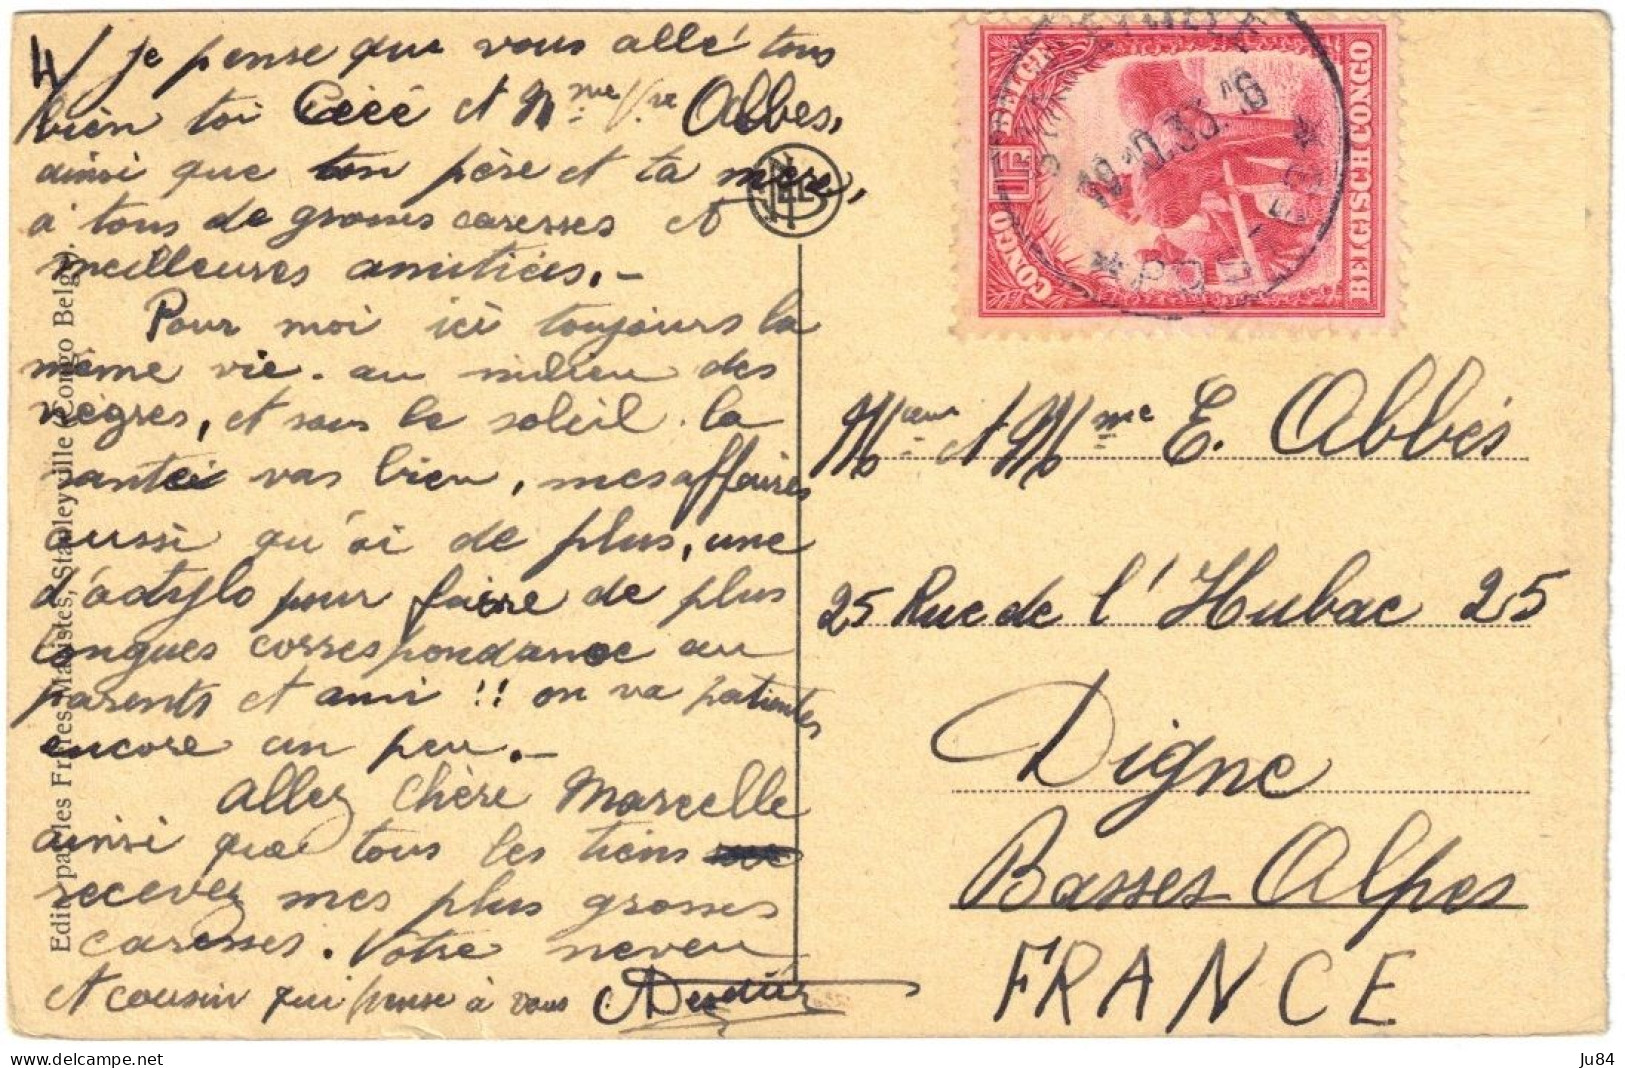 4/ je pense que vous allé tous
bien toi Cécé et Mme Vve Abbes,
ainsi que ton père et ta mère,
a tous de grosses caresses et
meilleures amitiées. –
Pour moi ici toujours la
même vie. au milieu des
nègres, et sous le soleil. la
santée vas bien, mes affaires
aussi qu'ai de plus, une
d'actylo pour faire de plus
longues correspondance au
parents et ami !! on va patientés
encore un peu. –
Allez chère Marcelle
ainsi que tous les tiens
recevez mes plus grosses
caresses. Votre neveu
et cousin qui pense à vous
Edité par les Frères Maristes, Stanleyville (Congo Belge).
NELS
CONGO BELGE
BELGISCH CONGO
1 FR
STANLEYVILLE
19.10.35.16
Mr et Mme E. Abbés
25 Rue de l'Hubac 25
Digne
Basses Alpes
FRANCE
Ju84